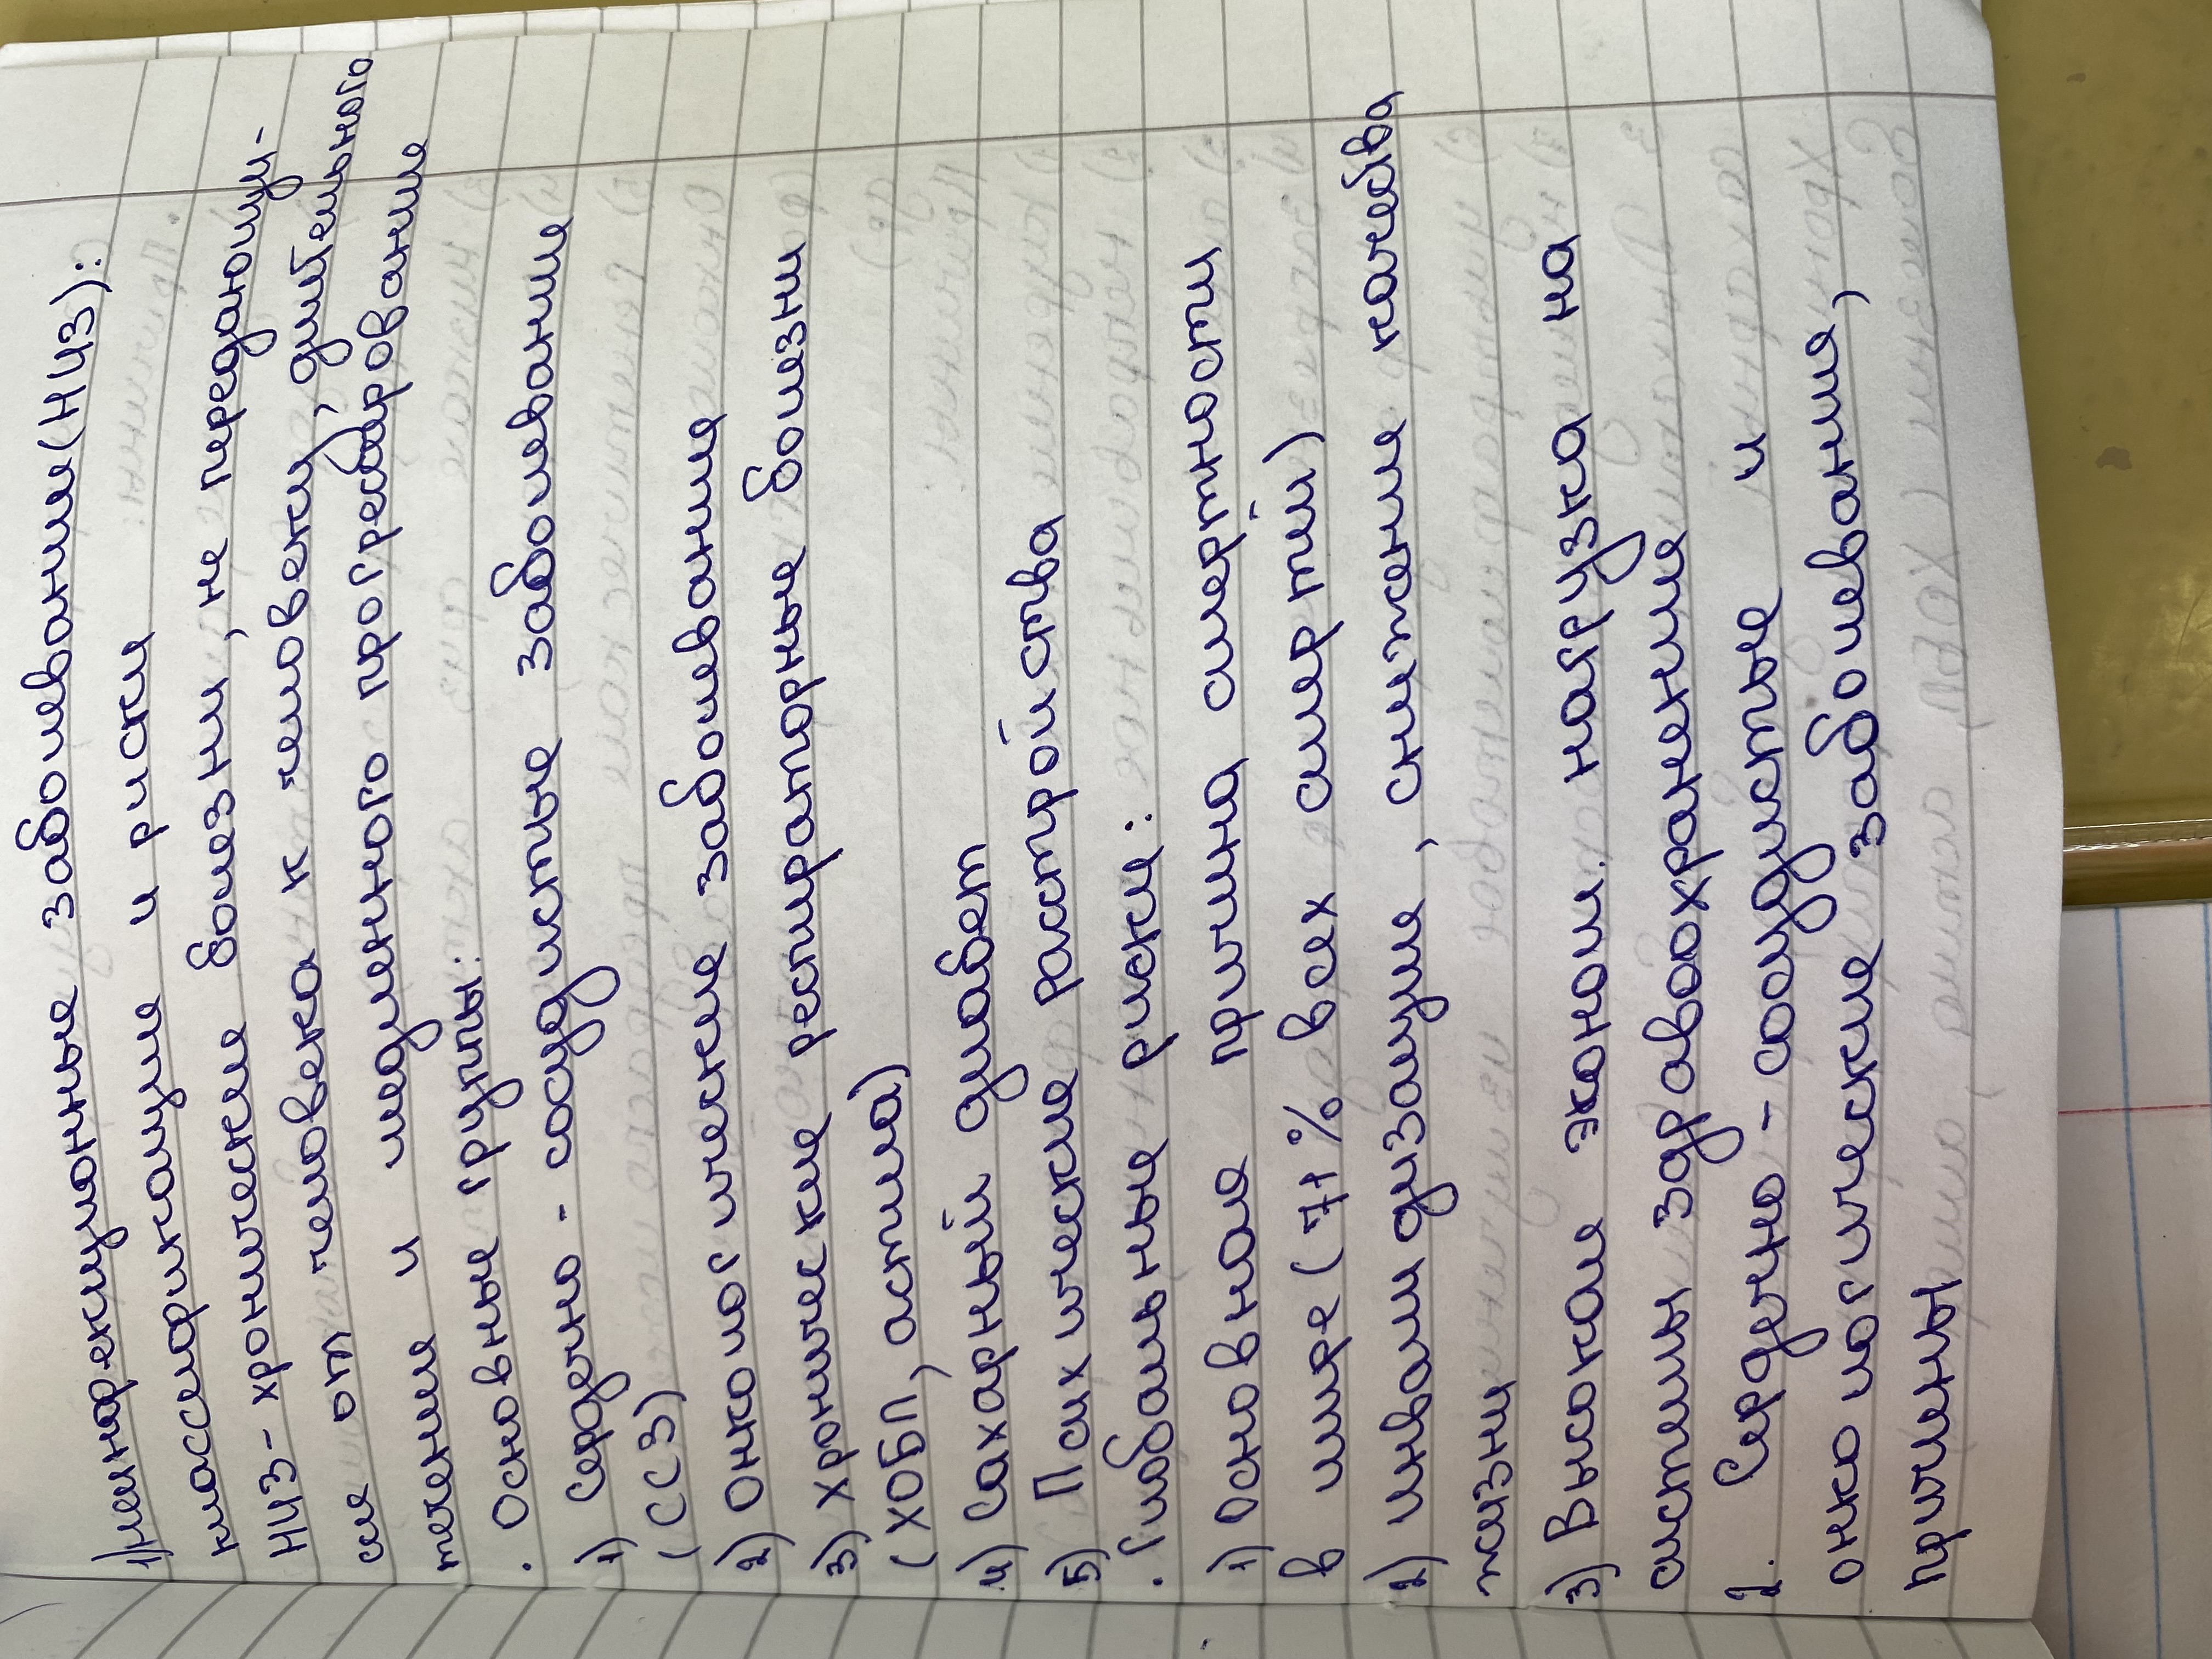 1) Неинфекционные заболевания (НИЗ):
классификация и риски
НИЗ - хронические болезни, не передающи-
еся от человека к человеку, длительного
течения и медленного прогрессирования
. Основные группы:
1) Сердечно - сосудистые заболевания
(ССЗ)
2) Онкологические заболевания
3) хронические респираторные болезни
(ХОБЛ, астма)
4) Сахарный диабет
5) Психические расстройства
. Глобальные риски:
1) Основная причина смертности
в мире (71% всех смертей)
2) инвалидизация, снижение качества
жизни
3) Высокая эконом. нагрузка на
системы здравоохранения
2. Сердечно - сосудистые и
онкологические заболевания,
причины